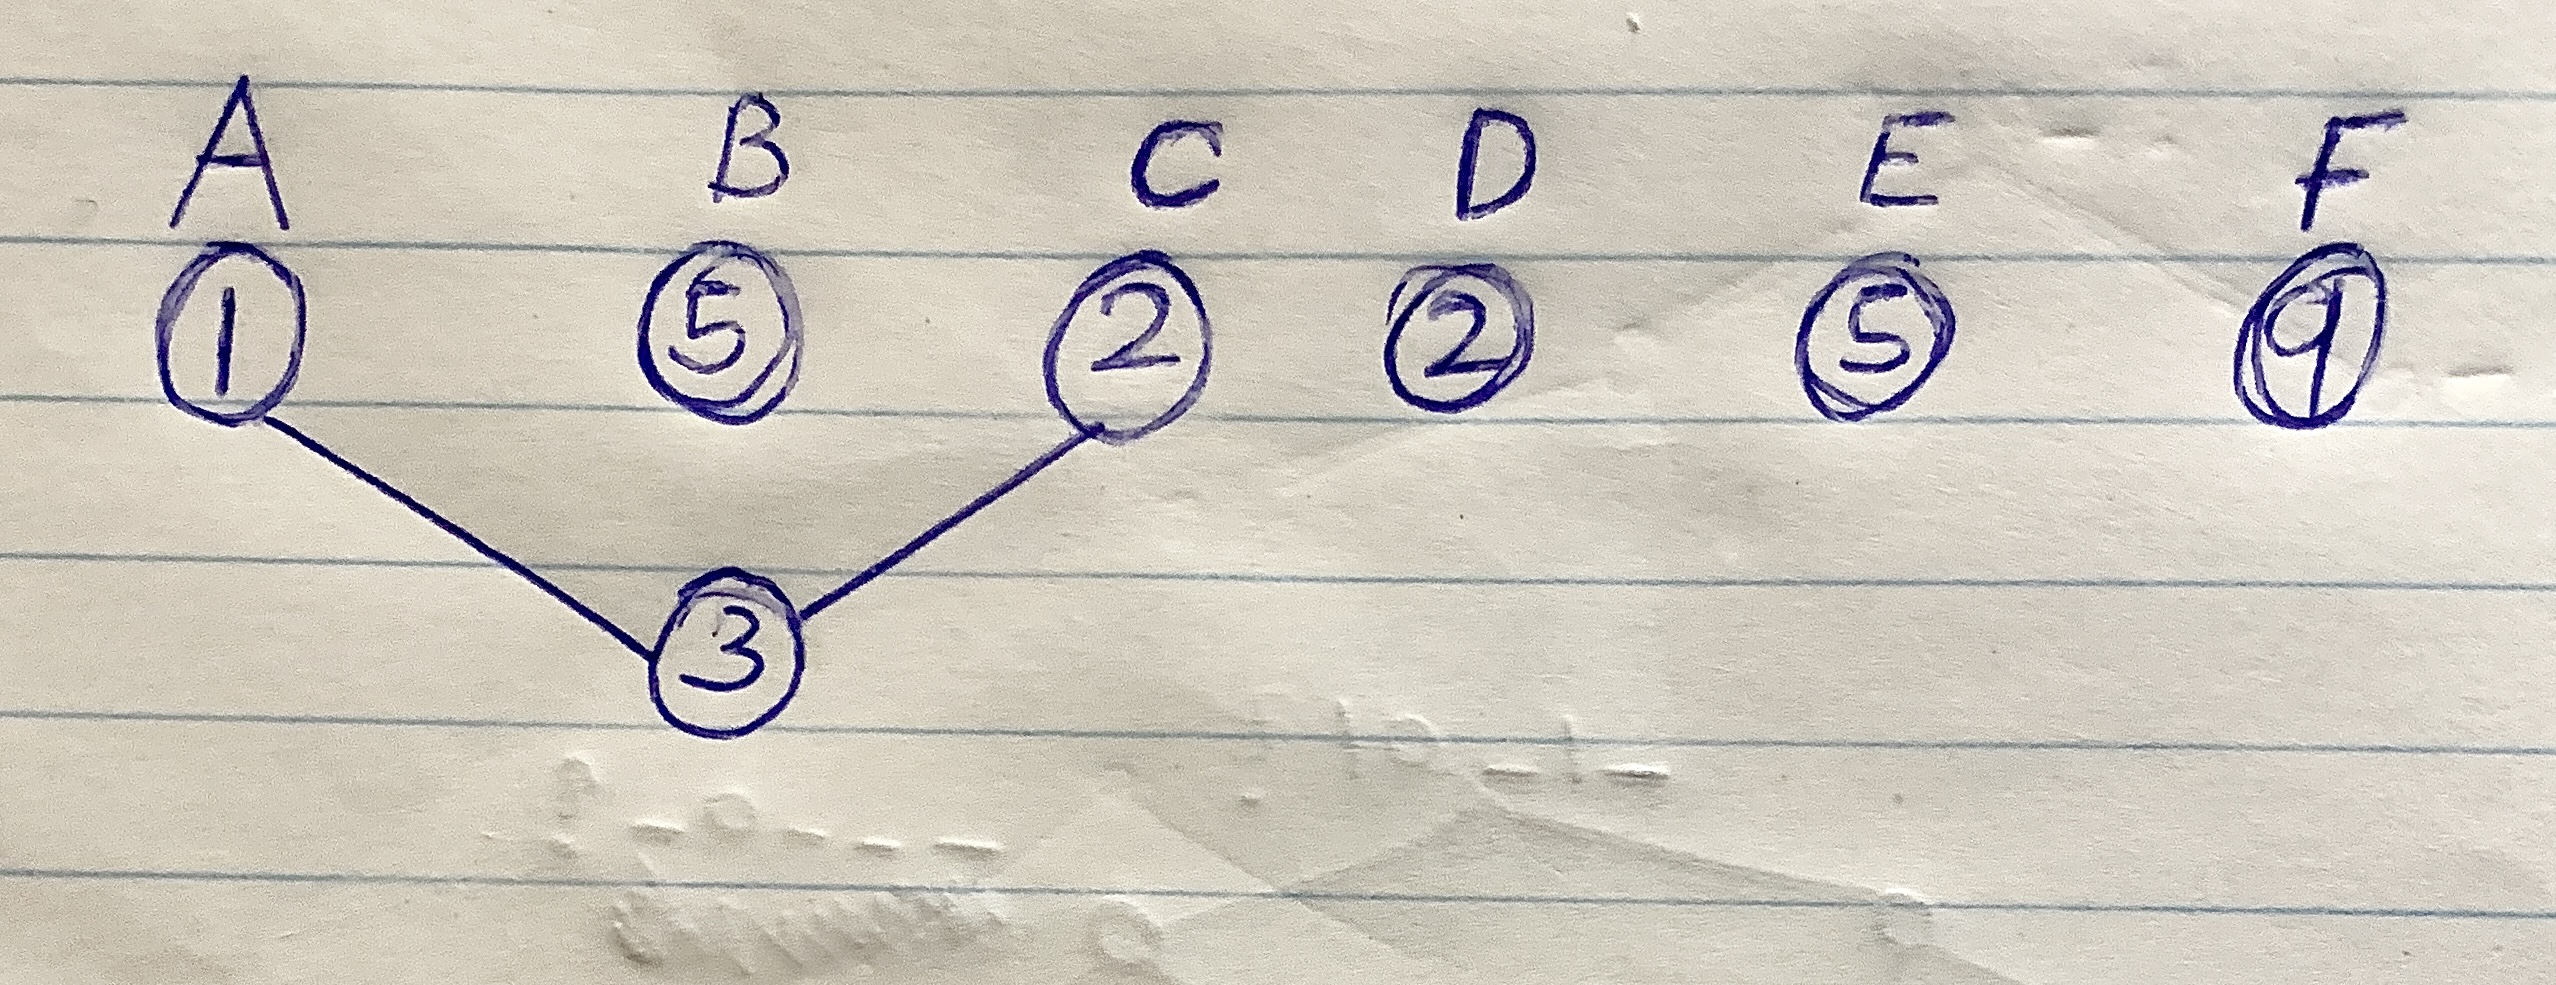 A B C D E F
1 5 2 2 5 9
3